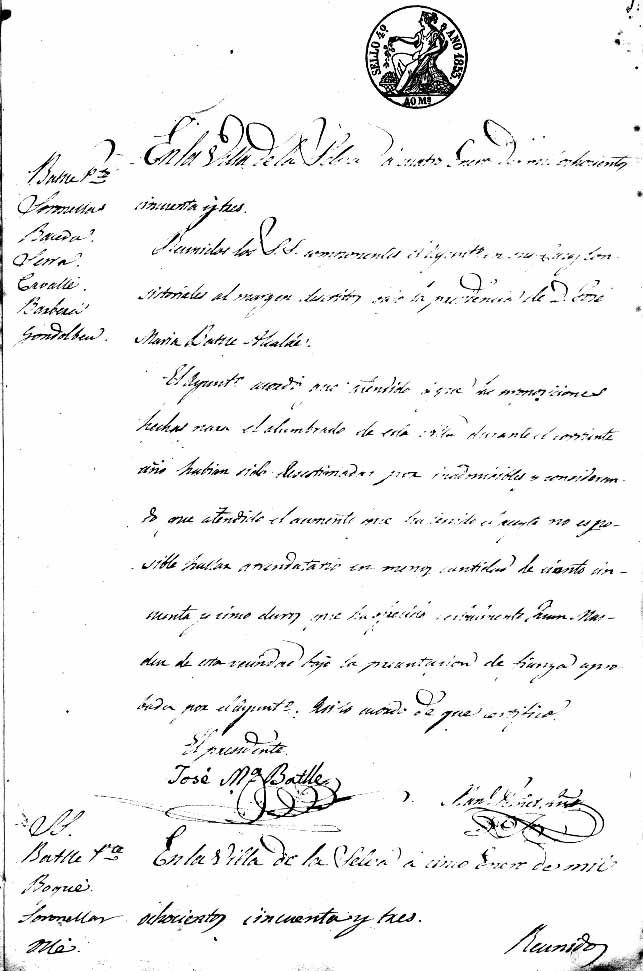 SELLO 4º AÑO 1853.
40 Ms
En la Villa de la Selva á cuatro Enero de mil ochocientos
cincuenta y tres.
Batlle Pte
Soronellas
Serra
Cavallé
Barberá
Gondolbeu
Reunidos los S.S. componentes el Ayuntº en sus Casas Con-
sistoriales al margen descritos bajo la presidencia de D. José
Maria Batlle Alcalde.
El Ayuntº acordó que atendido á que las proposiciones
hechas para el alumbrado de esta villa durante el corriente
año habian sido desestimadas por inadmisibles y consideran-
do que atendido el aumento que ha tenido el aceyte no es po-
sible hallar arrendatario en menos cantidad de ciento cin-
cuenta y cinco duros que ha ofrecido Juan Mas-
deu de esta vecindad bajo la presentacion de fianza apro-
bada por el Ayuntº. Asi lo acordó de que certifico.
El presidente
José Mª Batlle
S.S.
Batlle
Boqué
Soronellas
Ollé
En la Villa de la Selva á cinco Enero de mil
ochocientos cincuenta y tres.
Reunidos